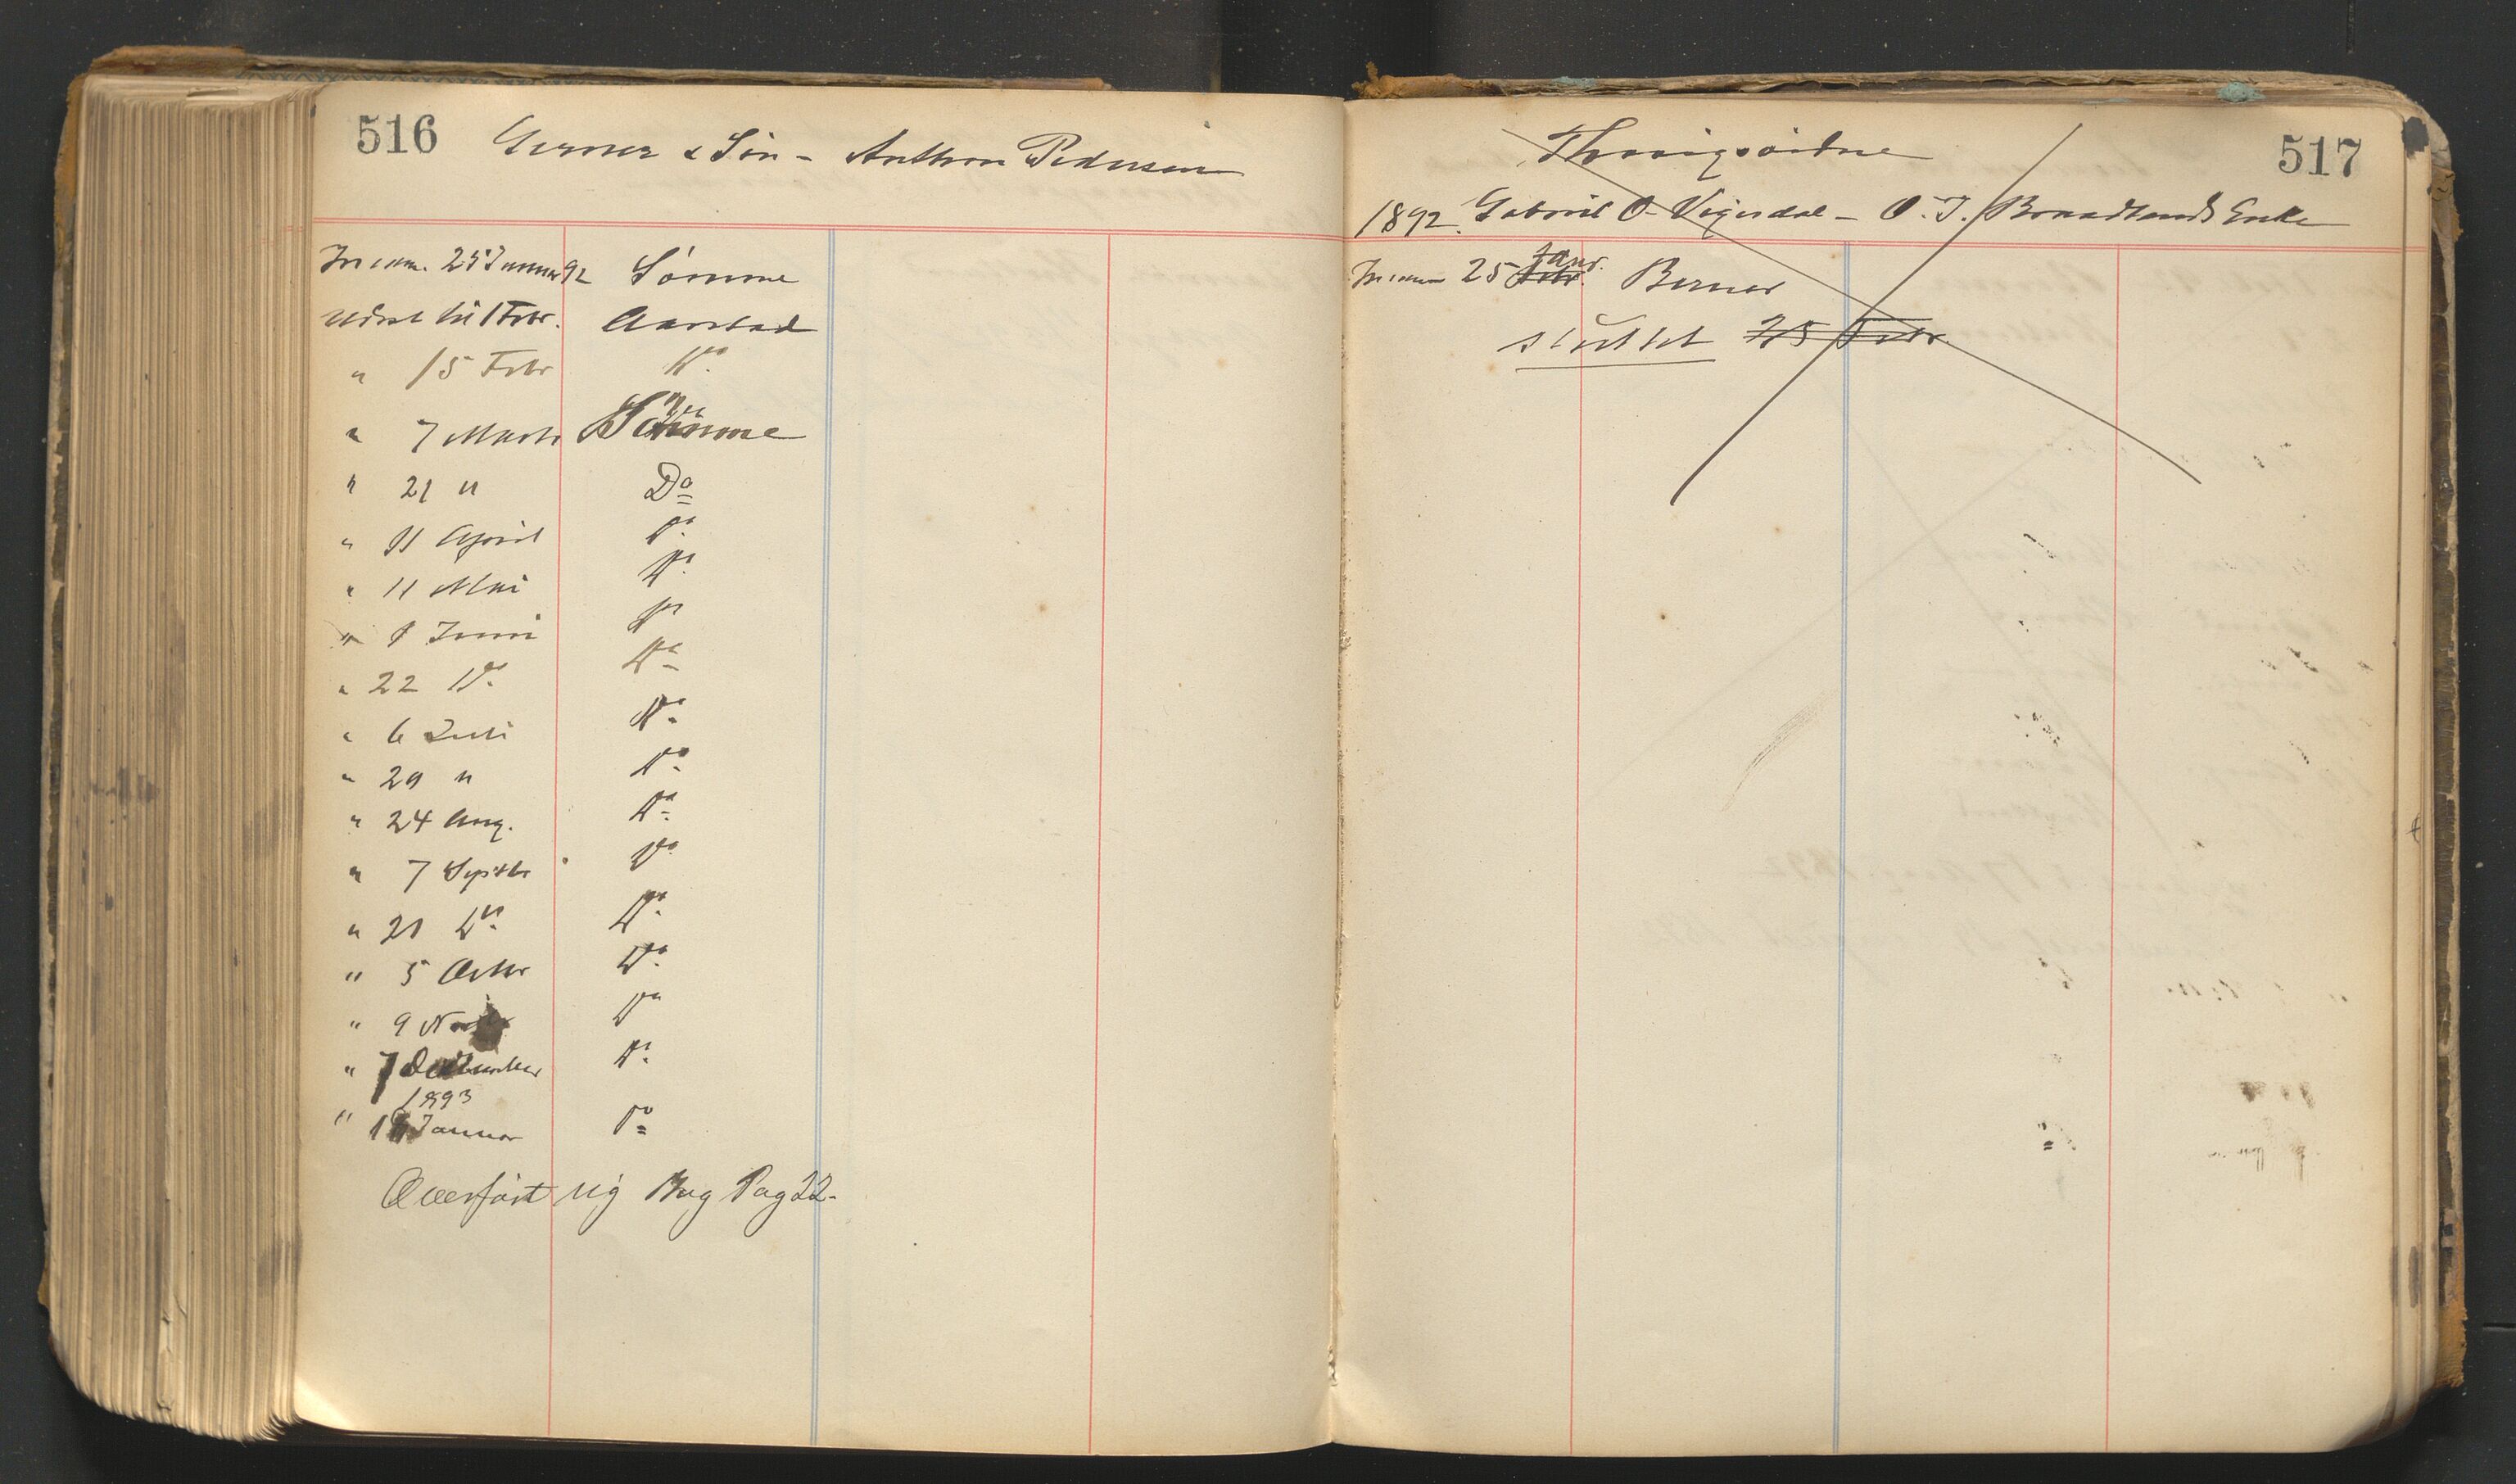 516
Gerner & Søn - Anthon Pedersen
Incam. 25 Januar 92 Sømme
Udsat til 1 Febr. Aarstad
" 15 Febr Do
" 7 Marts Sømme
" 21 " Do
" 11 April Do
" 11 Mai Do
" 8 Juni Do
" 22 Do Do
" 6 Juli Do
" 29 " Do
" 24 Aug. Do
" 7 Septbr Do
" 21 Do Do
" 5 Octbr Do
" 9 Novbr Do
" 7 December Do
1893
" 18 Januar Do
Overført ny Bog Pag 22-
517
1892. Gabriel O. Vigesdal - O. J. Braadlands Enke
Incam 25 Febr. Janr. Berner
sluttet 25 Febr.